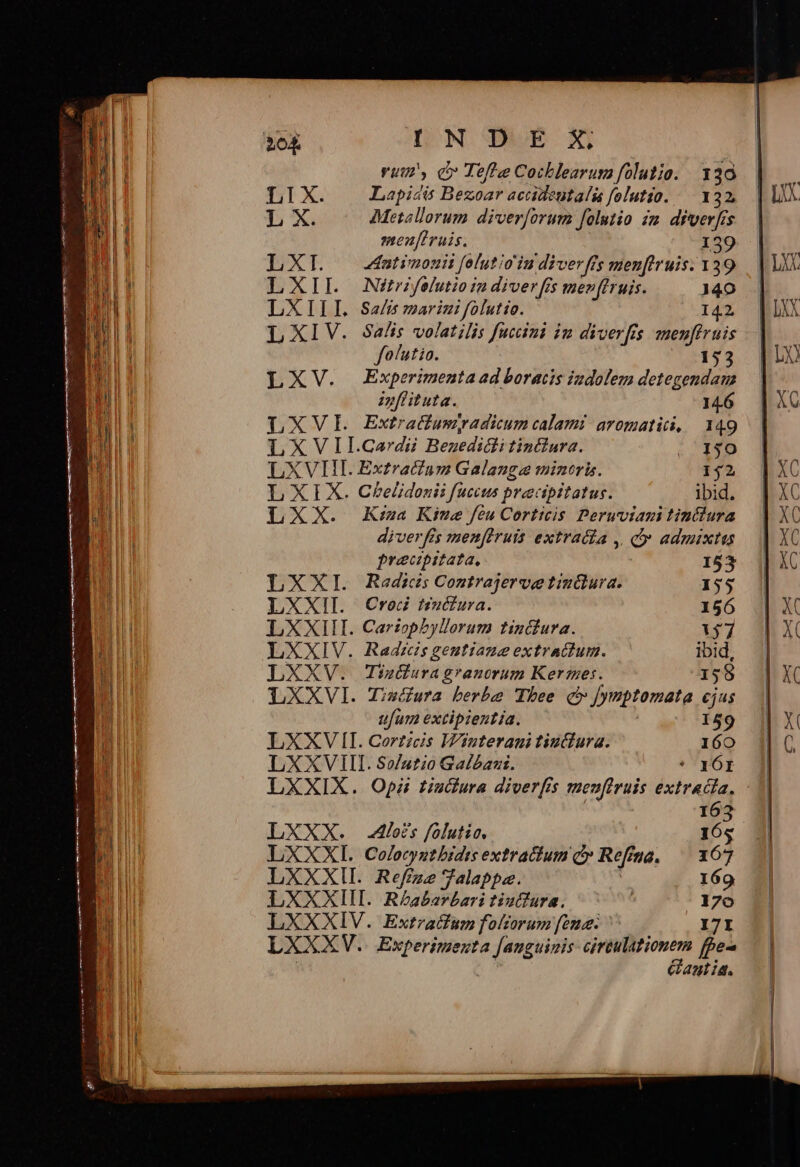 204 INDEX.
rum, & Teſtæ Cochlearum ſolutio. 130
LIX. Lapidis Bezoar accidentalis ſolutio. 132
LX. Metallorum diverſorum ſolutio in diverſis
menſtruis. 139
LXI. Antimonii ſolutio in diverſis menſtruis. 139
LXII. Nitri ſolutio in diverſis menſtruis. 140
LXIII. Salis marini ſolutio. 142
LXIV. Salis volatilis ſuccini in diverſis menſtruis
ſolutio. 153
LXV. Experimenta ad boracis indolem detegendam
inſtituta. 146
LXVI. Extractum radicum calami aromatici, 149
LXVII. Cardii Benedicti tinctura. 150
LXVIII. Extractum Galangæ minoris. 152
LXIX. Chelidonii ſuccus præcipitatus. ibid.
LXX. Kina Kinæ ſeu Corticis Peruviani tinctura
diverſis menſtruis extracta, & admixtis
præcipitata. 153
LXXI. Radicis Contrajervæ tinctura. 155
LXXII. Croci tinctura. 156
LXXIII. Cariophyllorum tinctura. 157
LXXIV. Radicis gentianæ extractum. ibid.
LXXV. Tinctura granorum Kermes. 158
LXXVI. Tinctura herbæ Thee & ſymptomata ejus
uſum excipientia. 159
LXXVII. Corticis Winterani tinctura. 160
LXXVIII. Solutio Galbani. 161
LXXIX. Opii tinctura diverſis menſtruis extracta.
163
LXXX. Aloës ſolutio. 165
LXXXI. Colocynthidis extractum & Reſina. 167
LXXXII. Reſinæ Jalappæ. 169
LXXXIII. Rhabarbari tinctura. 170
LXXXIV. Extractum foliorum ſenæ. 171
LXXXV. Experimenta ſanguinis circulationem ſpe-
ctantia.